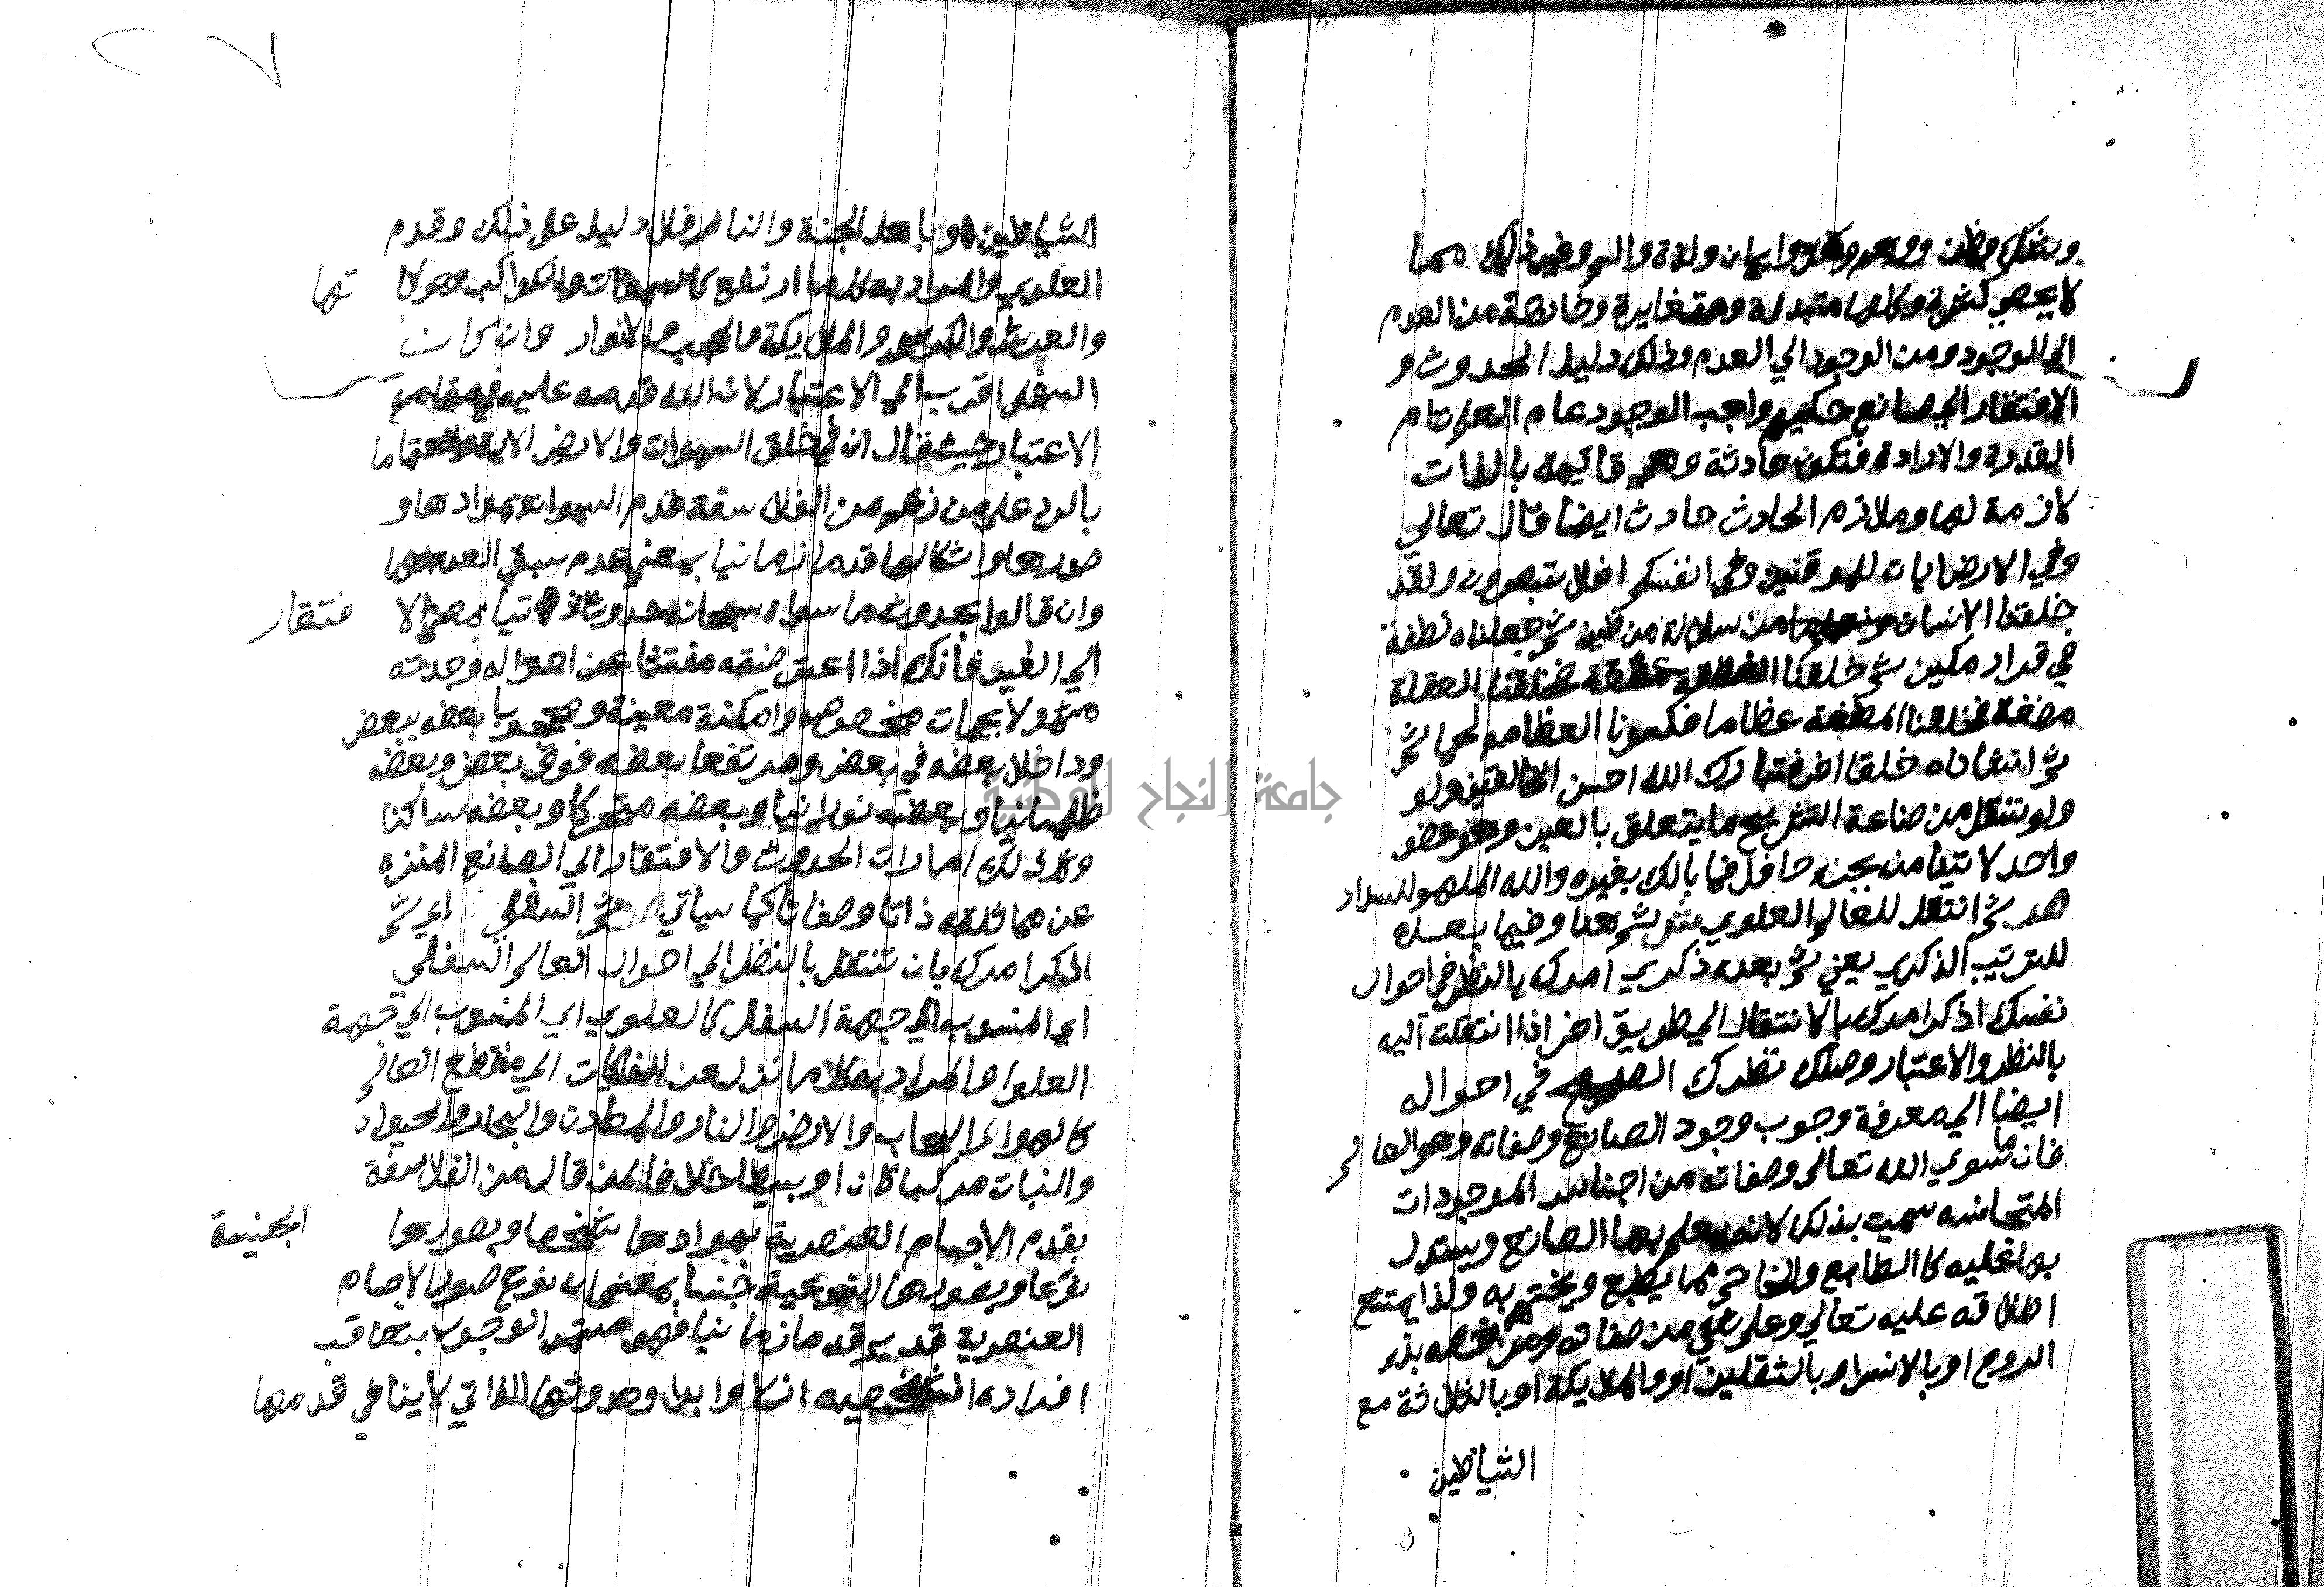 وشك وظن ووهم وكفر وايمان ولذة والم وغير ذلك مما
لا يحصي كثرة وكلها متبدلة ومتغايرة وخارجة من العدم
الي الوجود ومن الوجود الي العدم وذلك دليل الحدوث و
الافتقار الي صانع حكيم واجب الوجود عام العلم تام
القدرة والارادة فتكون حادثة وهي قائمة بالذات
لازمة لها وملازم الحادث حادث ايضا قال تعالي
وفي الارض ايات للموقنين وفي انفسكم افلا تبصرون ولقد
خلقنا الانسان من سلالة من طين ثم جعلناه نطفة
في قرار مكين ثم خلقنا النطفة علقة فخلقنا العقلة
مضغة فخلقنا المضغة عظاما فكسونا العظام لحما ثم
ثم انشاناه خلقا اخر فتبارك الله احسن الخالقين ولو
ولو تنقل من صناعة التشريح ما يتعلق بالعين وهو عضو
واحد لاتينا من بجزء حافل فما بالك بغيره والله الملهم للسداد
ص ثم انتقل للعالم العلوي ثم ش ثم هنا وفيما بعده
للترتيب الذكري يعني ثم بعد ذكري امرك بالنظر في احوال
نفسك اذكر امرك بالانتقال الي طريق اخر اذا انتقلت اليه
بالنظر والاعتبار وصلك نظرك الصحيح في احواله
ايضا الي معرفة وجوب وجود الصانع وصفاته وهو العالم
فان ما سوي الله تعالي وصفاته من اجناس الموجودات
المتجانسه سميت بذلك لانه يعلم بها الصانع ويستدل
بها عليه كالطابع والخاتم مما يطبع ويختم به ولذا يمتنع
اطلاقه عليه تعالي وعلي شي من صفاته ومن خصه بذي
الروح او بالانس او بالثقلين او والملايكة او بالثلاثة مع
الشياطين
الشياطين او باهل الجنة والنار فلا دليل علي ذلك وقدم
العلوي والمراد به كل ما ارتفع كالسموات والكواكب وحركا تها
والعرش والكرسي والملايكة والانوار وان كان
السفلي اقرب الي الاعتبار لان الله قدمه عليه في مقام
الاعتبار حيث قال ان في خلق السموات والارض الاية واهتماما
بالرد علي من زعم من الفلاسفة قدم السموات بموادها و
صورها واشكالها قدما زمانيا بمعني عدم سبق العدم لها
وان قالوا بحدوث ما سواه سبحانه حدوثا ذاتيا بمعني الا فتقار
الي الغير فانك اذا مفتشا عن احواله وجدته
مشمولا بجهات مخصوصه وامكنة معينة ومحجوبا بعضه ببعض
وداخلا بعضه في بعض ومرتفعا بعضه فوق بعض وبعضه
ظلمانيا وبعضه نورانيا وبعضه متحركا وبعضه ساكنا
وكل ذلك امارات الحدوث والافتقار الي الصانع المنزه
عن مماثلته ذاتا وصفات كما سياتي ص ثم السفلي ش اي ثم
اذكر امرك بان تنتقل بالنظر الي احوال العالم السفلي
اي المنسوب الي جهة السفل كالعلوي اي المنسوب الي جهة
العلو والمراد به كل ما نزل عن الفلكيات الي منقطع العالم
كالهوا والسحاب والارض والنار والمعادن والبحار والحيوان
والنبات مركبا كان او بسيطا خلافا لمن قال من الفلاسفة
بقدم الاجسام العنصرية بموادها شخصا وبصورها الجنسية
نوعا وبصورها النوعية جنسا بمعني ان نوع صور الاجسام
العنصرية قديم قدما زمانيا فهو مستمر الوجود بتعاقب
افراده الشخصيه ازلا وابدا وحدوثها الذاتي لا ينافي قدمها
جامعة النجاح الوطنية